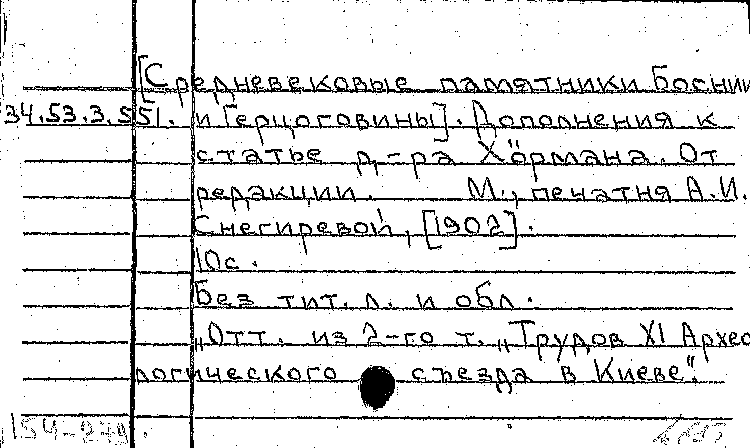 [Средневековые памятники Боснии
34.53.3.551. и Герцоговины]. Дополнения к
статье д-ра Хöрмана. От
редакции. М., печатня А.И.
Снегиревой, [1902].
10с.
Без тит. л. и обл.
„Отт. из 2-го т. „Трудов XI Архео
логического съезда в Киеве".
154-279.